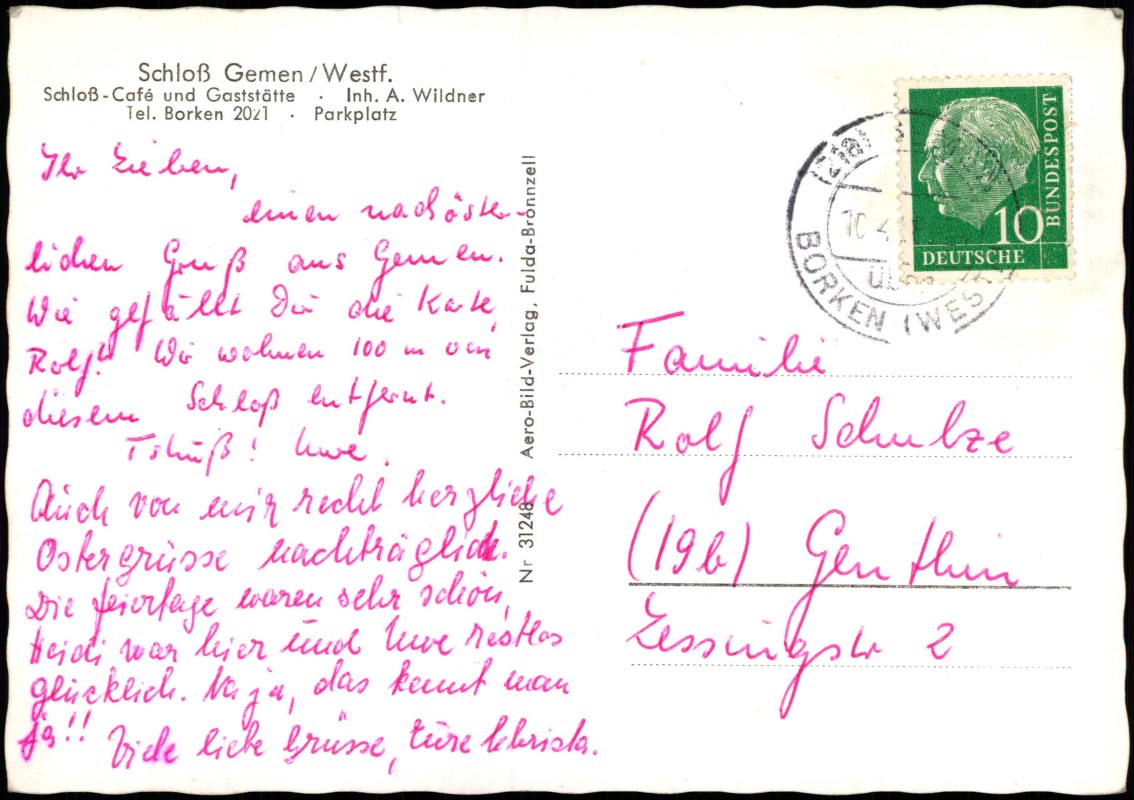 Schloß Gemen / Westf.
Schloß-Café und Gaststätte · Inh. A. Wildner
Tel. Borken 2021 · Parkplatz
Ihr Lieben,
einen nachöster-
lichen Gruß aus Gemen.
Wie gefällt Dir die Karte,
Rolf? Wir wohnen 100 m von
diesem Schloß entfernt.
Tschüß! Uwe.
Auch von mir recht herzliche
Ostergrüsse nachträglich.
Die Feiertage waren sehr schön,
Heidi war hier und Uwe restlos
glücklich. Na ja, das kennt man
ja!!
Viele liebe Grüsse, Eure Christa.
Nr 31248 Aero-Bild-Verlag, Fulda-Bronnzell
BORKEN (WEST
10.4.
üb
10
DEUTSCHE
BUNDESPOST
Familie
Rolf Schulze
(19b) Genthin
Lessingstr 2